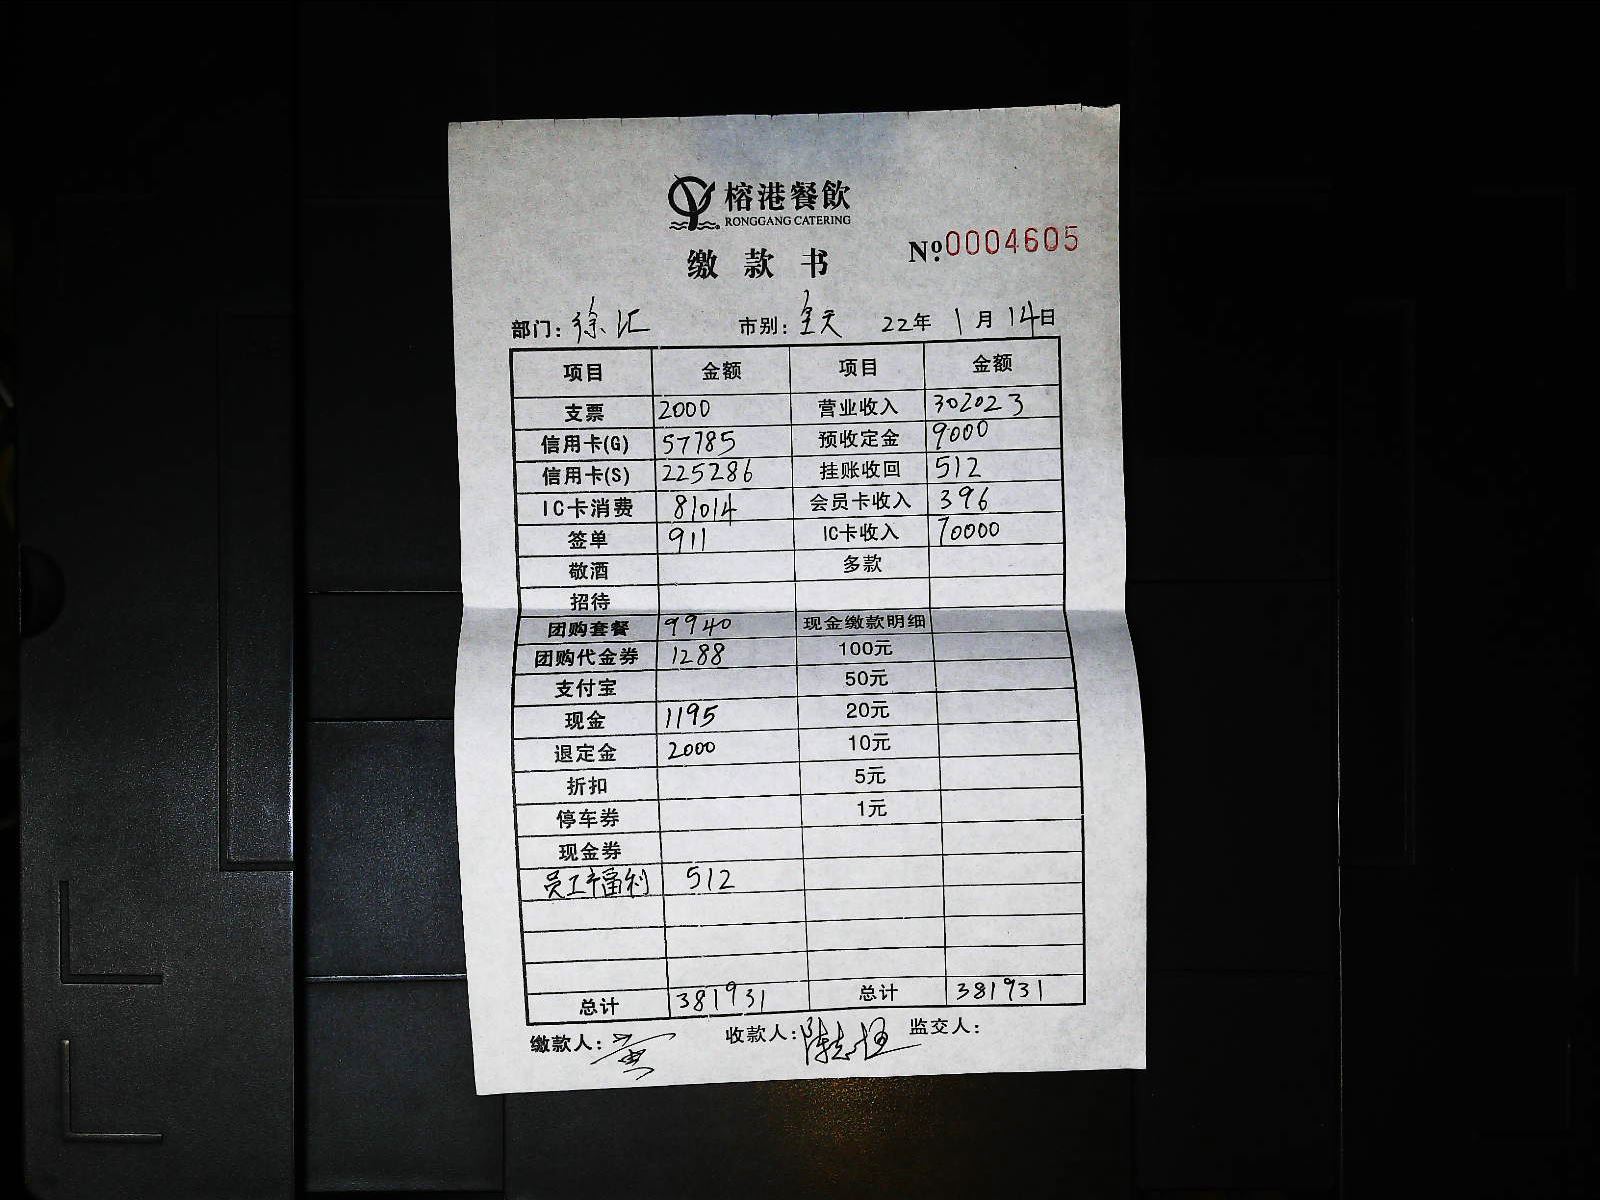 榕港餐飲
RONGGANG CATERING
缴款书
No 0004605
部门: 徐汇 市别: 全天 22年 1月 14日
项目 金额 项目 金额
支票 2000 营业收入 302023
信用卡(G) 57785 预收定金 9000
信用卡(S) 225286 挂账收回 512
IC卡消费 81014 会员卡收入 396
签单 911 IC卡收入 70000
敬酒 多款
招待
团购套餐 9940 现金缴款明细
团购代金券 1288 100元
支付宝 50元
现金 1195 20元
退定金 2000 10元
折扣 5元
停车券 1元
现金券
员工福利 512
总计 381931 总计 381931
缴款人: 黄 收款人: 陈志 监交人: